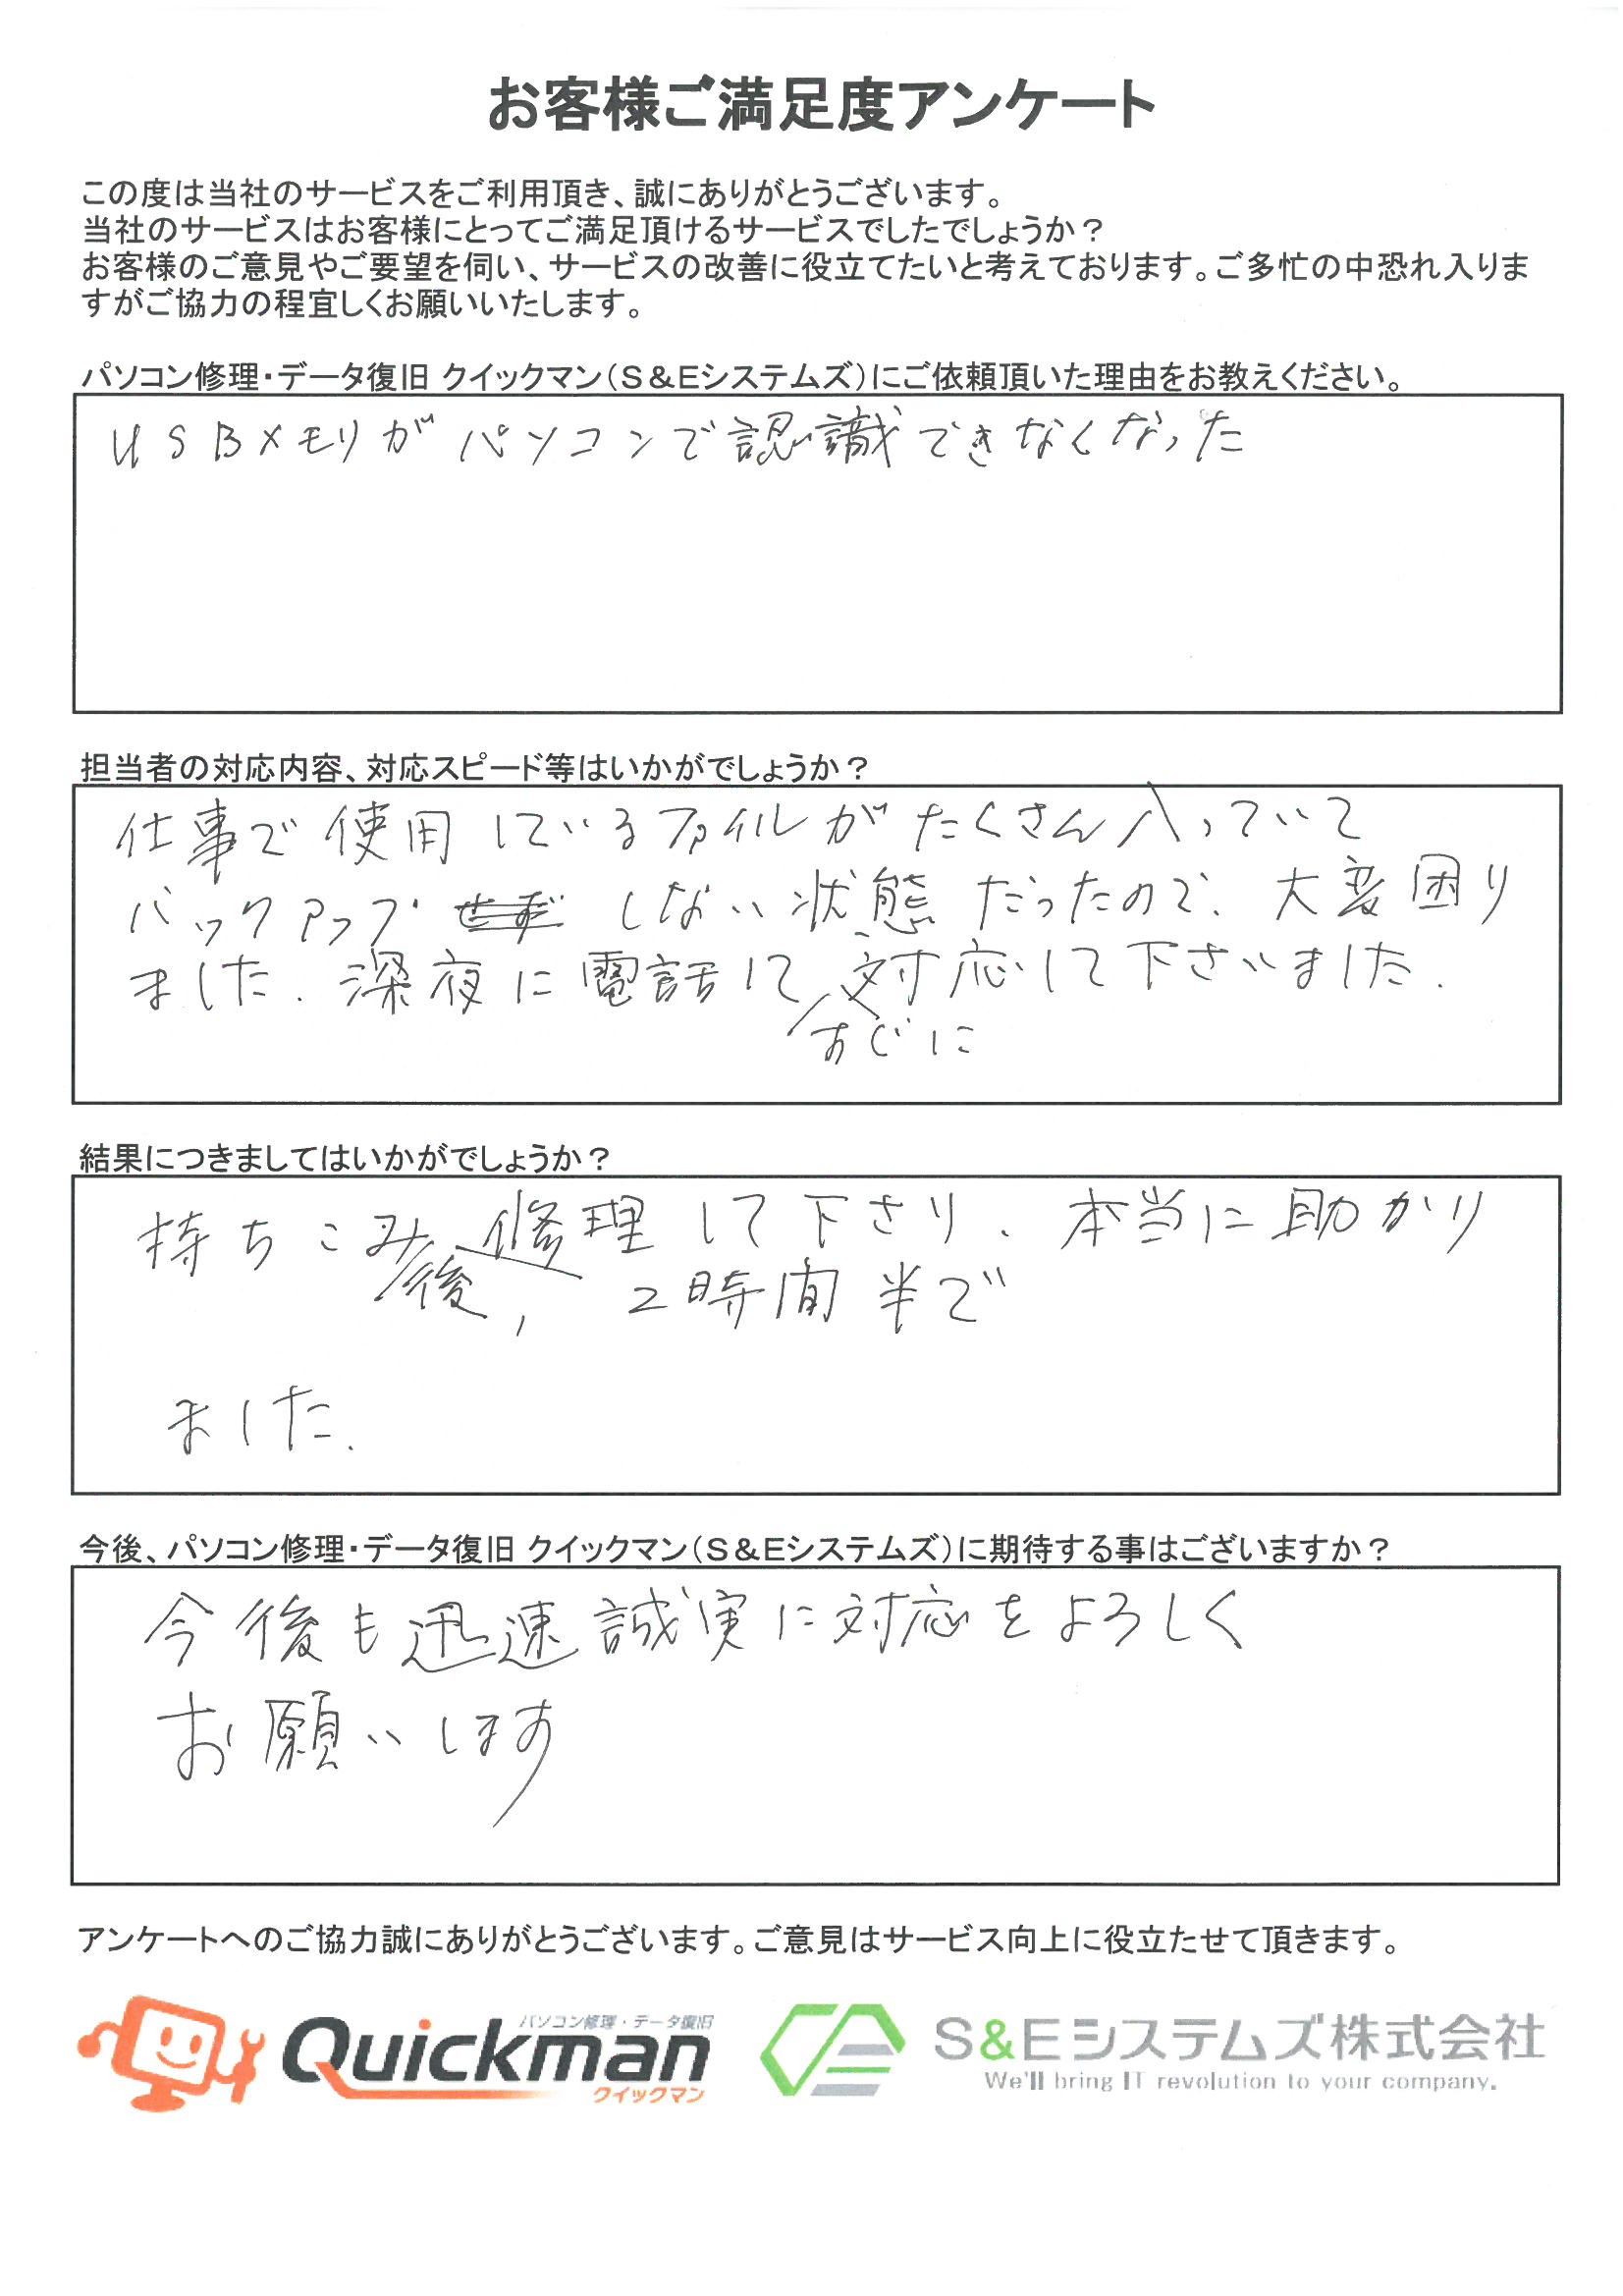 お客様ご満足度アンケート
この度は当社のサービスをご利用頂き、誠にありがとうございます。
当社のサービスはお客様にとってご満足頂けるサービスでしたでしょうか？
お客様のご意見やご要望を伺い、サービスの改善に役立てたいと考えております。ご多忙の中恐れ入りま
すがご協力の程宜しくお願いいたします。
パソコン修理・データ復旧 クイックマン（S＆Eシステムズ）にご依頼頂いた理由をお教えください。
USBメモリがパソコンで認識できなくなった
担当者の対応内容、対応スピード等はいかがでしょうか？
仕事で使用しているファイルがたくさん入っていて
バックアップしない状態だったので、大変困り
ました。深夜に電話して対応して下さいました。
すぐに
結果につきましてはいかがでしょうか？
持ちこみ修理して下さり、本当に助かり
後、2時間半で
ました。
今後、パソコン修理・データ復旧 クイックマン（S＆Eシステムズ）に期待する事はございますか？
今後も迅速誠実に対応をよろしく
お願いします
アンケートへのご協力誠にありがとうございます。ご意見はサービス向上に役立たせて頂きます。
パソコン修理・データ復旧
Quickman
クイックマン
S&Eシステムズ株式会社
We'll bring IT revolution to your company.